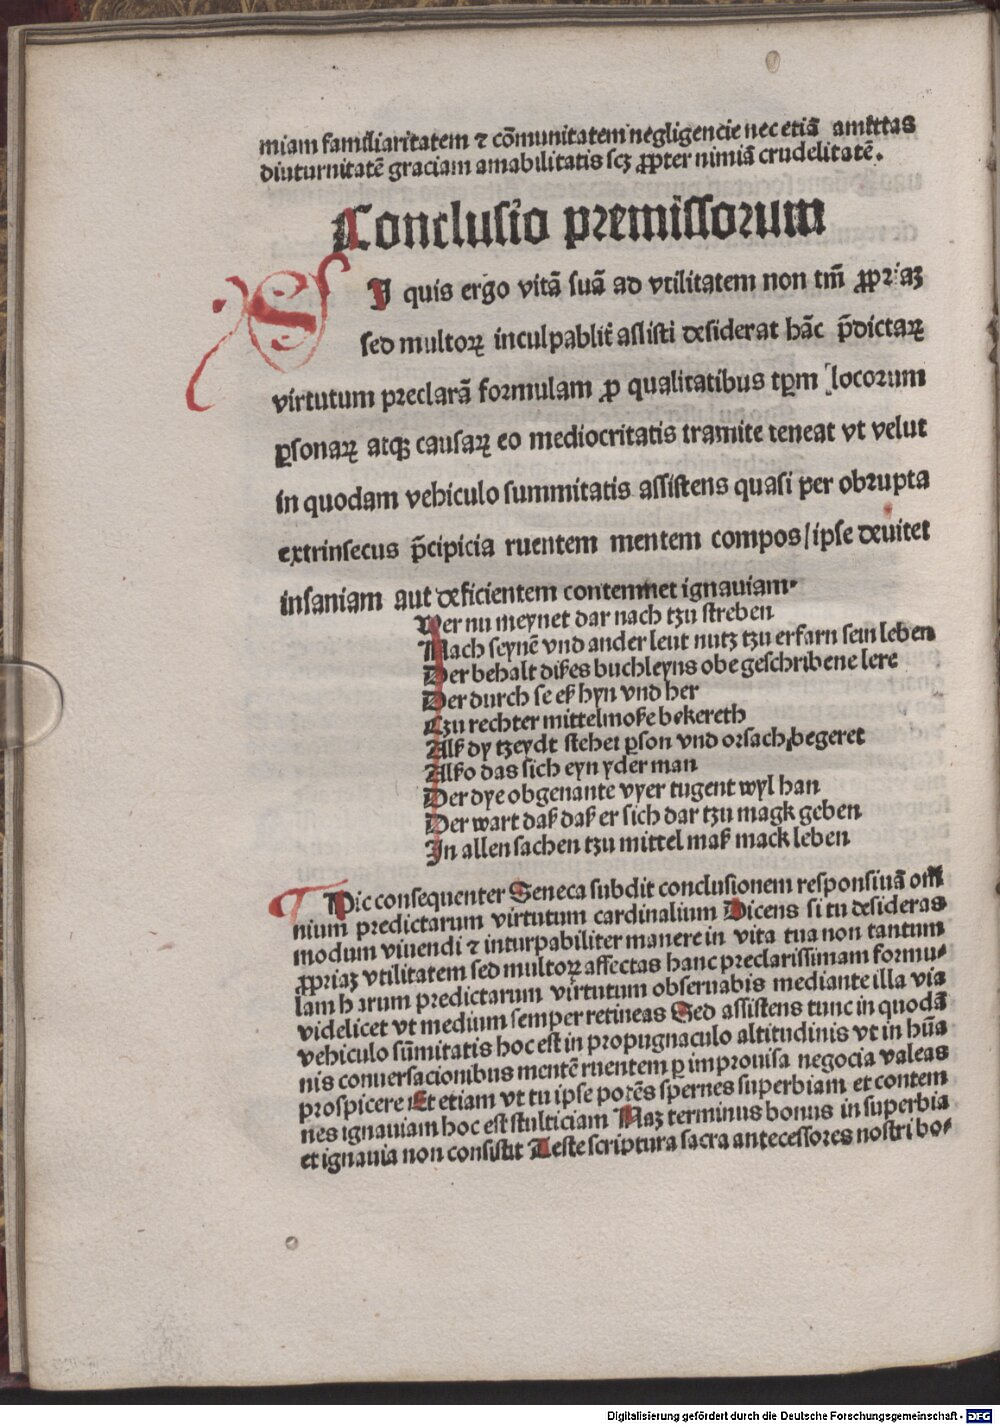 miam familiaritatem ⁊ cõmunitatem negligencie nec etiã amittas
diuturnitatẽ graciam amabilitatis scꝫ ꝓpter nimiã crudelitatẽ.
Conclusio premissorum
SI quis ergo vitã suã ad vtilitatem non tm̃ ꝓpriaꝫ
sed multoꝝ inculpabilit̃ assisti desiderat hãc p̃dictaꝝ
virtutum preclarã formulam ꝓ qualitatibus tꝑm locorum
ꝑsonaꝝ atqꝫ causaꝝ eo mediocritatis tramite teneat vt velut
in quodam vehiculo summitatis assistens quasi per obrupta
extrinsecus p̃cipicia ruentem mentem compos/ ipse deuitet
insaniam aut deficientem contemnet ignauiam.
Wer nu meynet dar nach tzu streben
Nach seynẽ vnd ander leut nutz tzu erfarn sein leben
Der behalt dißes buchleyns obe geschribene lere
Der durch se eß hyn vnd her
Tzu rechter mittelmoße bekereth
Alß dy tzeydt stehet ꝑson vnd orsach begeret
Alßo das sich eyn yder man
Der dye obgenante vyer tugent wyl han
Der wart daß daß er sich dar tzu magk geben
In allen sachen tzu mittel maß mack leben
Hic consequenter Seneca subdit conclusionem responsiuã om̃
nium predictarum virtutum cardinalium Dicens si tu desideras
modum viuendi ⁊ inturpabiliter manere in vita tua non tantum
ꝓpriaꝫ vtilitatem sed multoꝝ affectas hanc preclarissimam formu-
lam harum predictarum virtutum obseruabis mediante illa via
videlicet vt medium semper retineas Sed assistens tunc in quodã
vehiculo sũmitatis hoc est in propugnaculo altitudinis vt in hũa
nis conuersacionibus mentẽ ruentem ꝑ improuisa negocia valeas
prospicere Et etiam vt tu ipse potẽs spernes superbiam et contem
nes ignauiam hoc est stulticiam Naꝫ terminus bonus in superbia
et ignauia non consistit Teste scriptura sacra antecessores nostri bo-
Digitalisierung gefördert durch die Deutsche Forschungsgemeinschaft - DFG